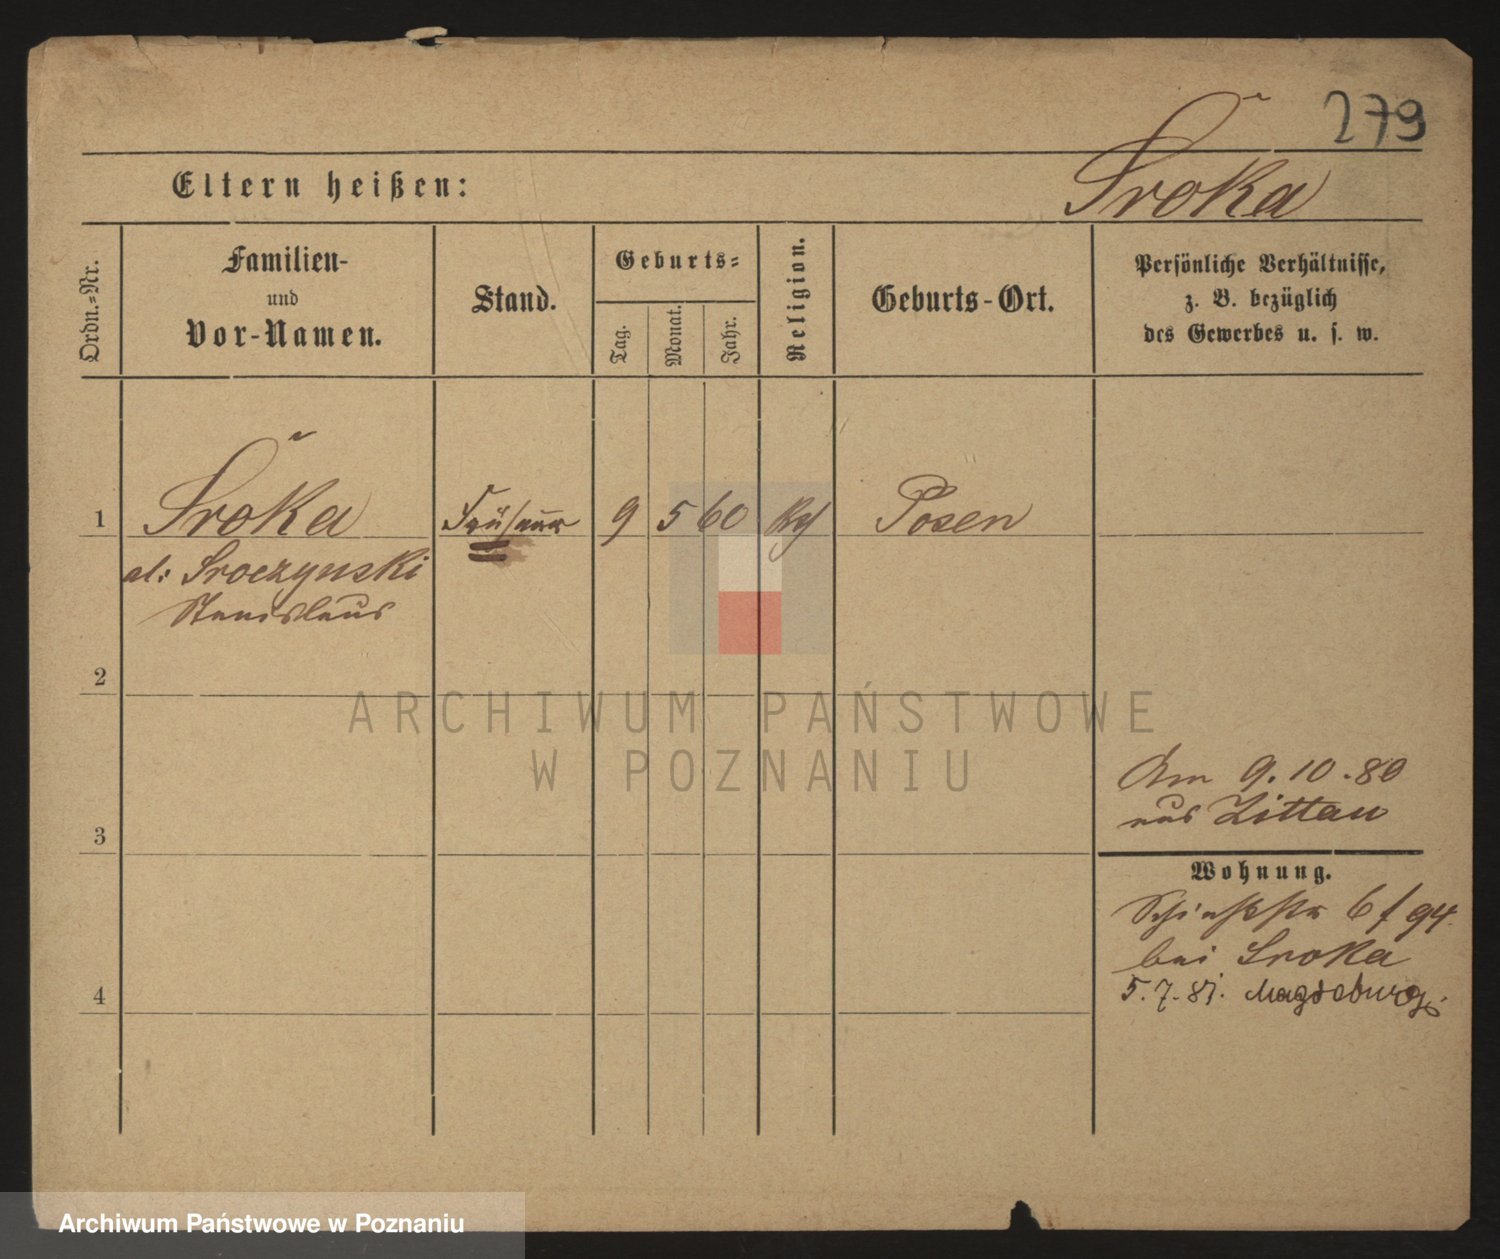 279
Eltern heißen:
Sroka
Ordn.-Nr.
Familien-
und
Vor-Namen.
Stand.
Geburts-
Tag.
Monat.
Jahr.
Religion.
Geburts-Ort.
Persönliche Verhältnisse,
z. B. bezüglich
des Gewerbes u. s. w.
1
Sroka
9
5
60
Posen
al: Sroczynski
Stanislaus
2
ARCHIWUM PAŃSTWOWE
W POZNANIU
Am 9.10.80
aus Zittau
3
Wohnung.
6 / 94.
bei Sroka
5.7.81. Magdeburg.
4
Archiwum Państwowe w Poznaniu